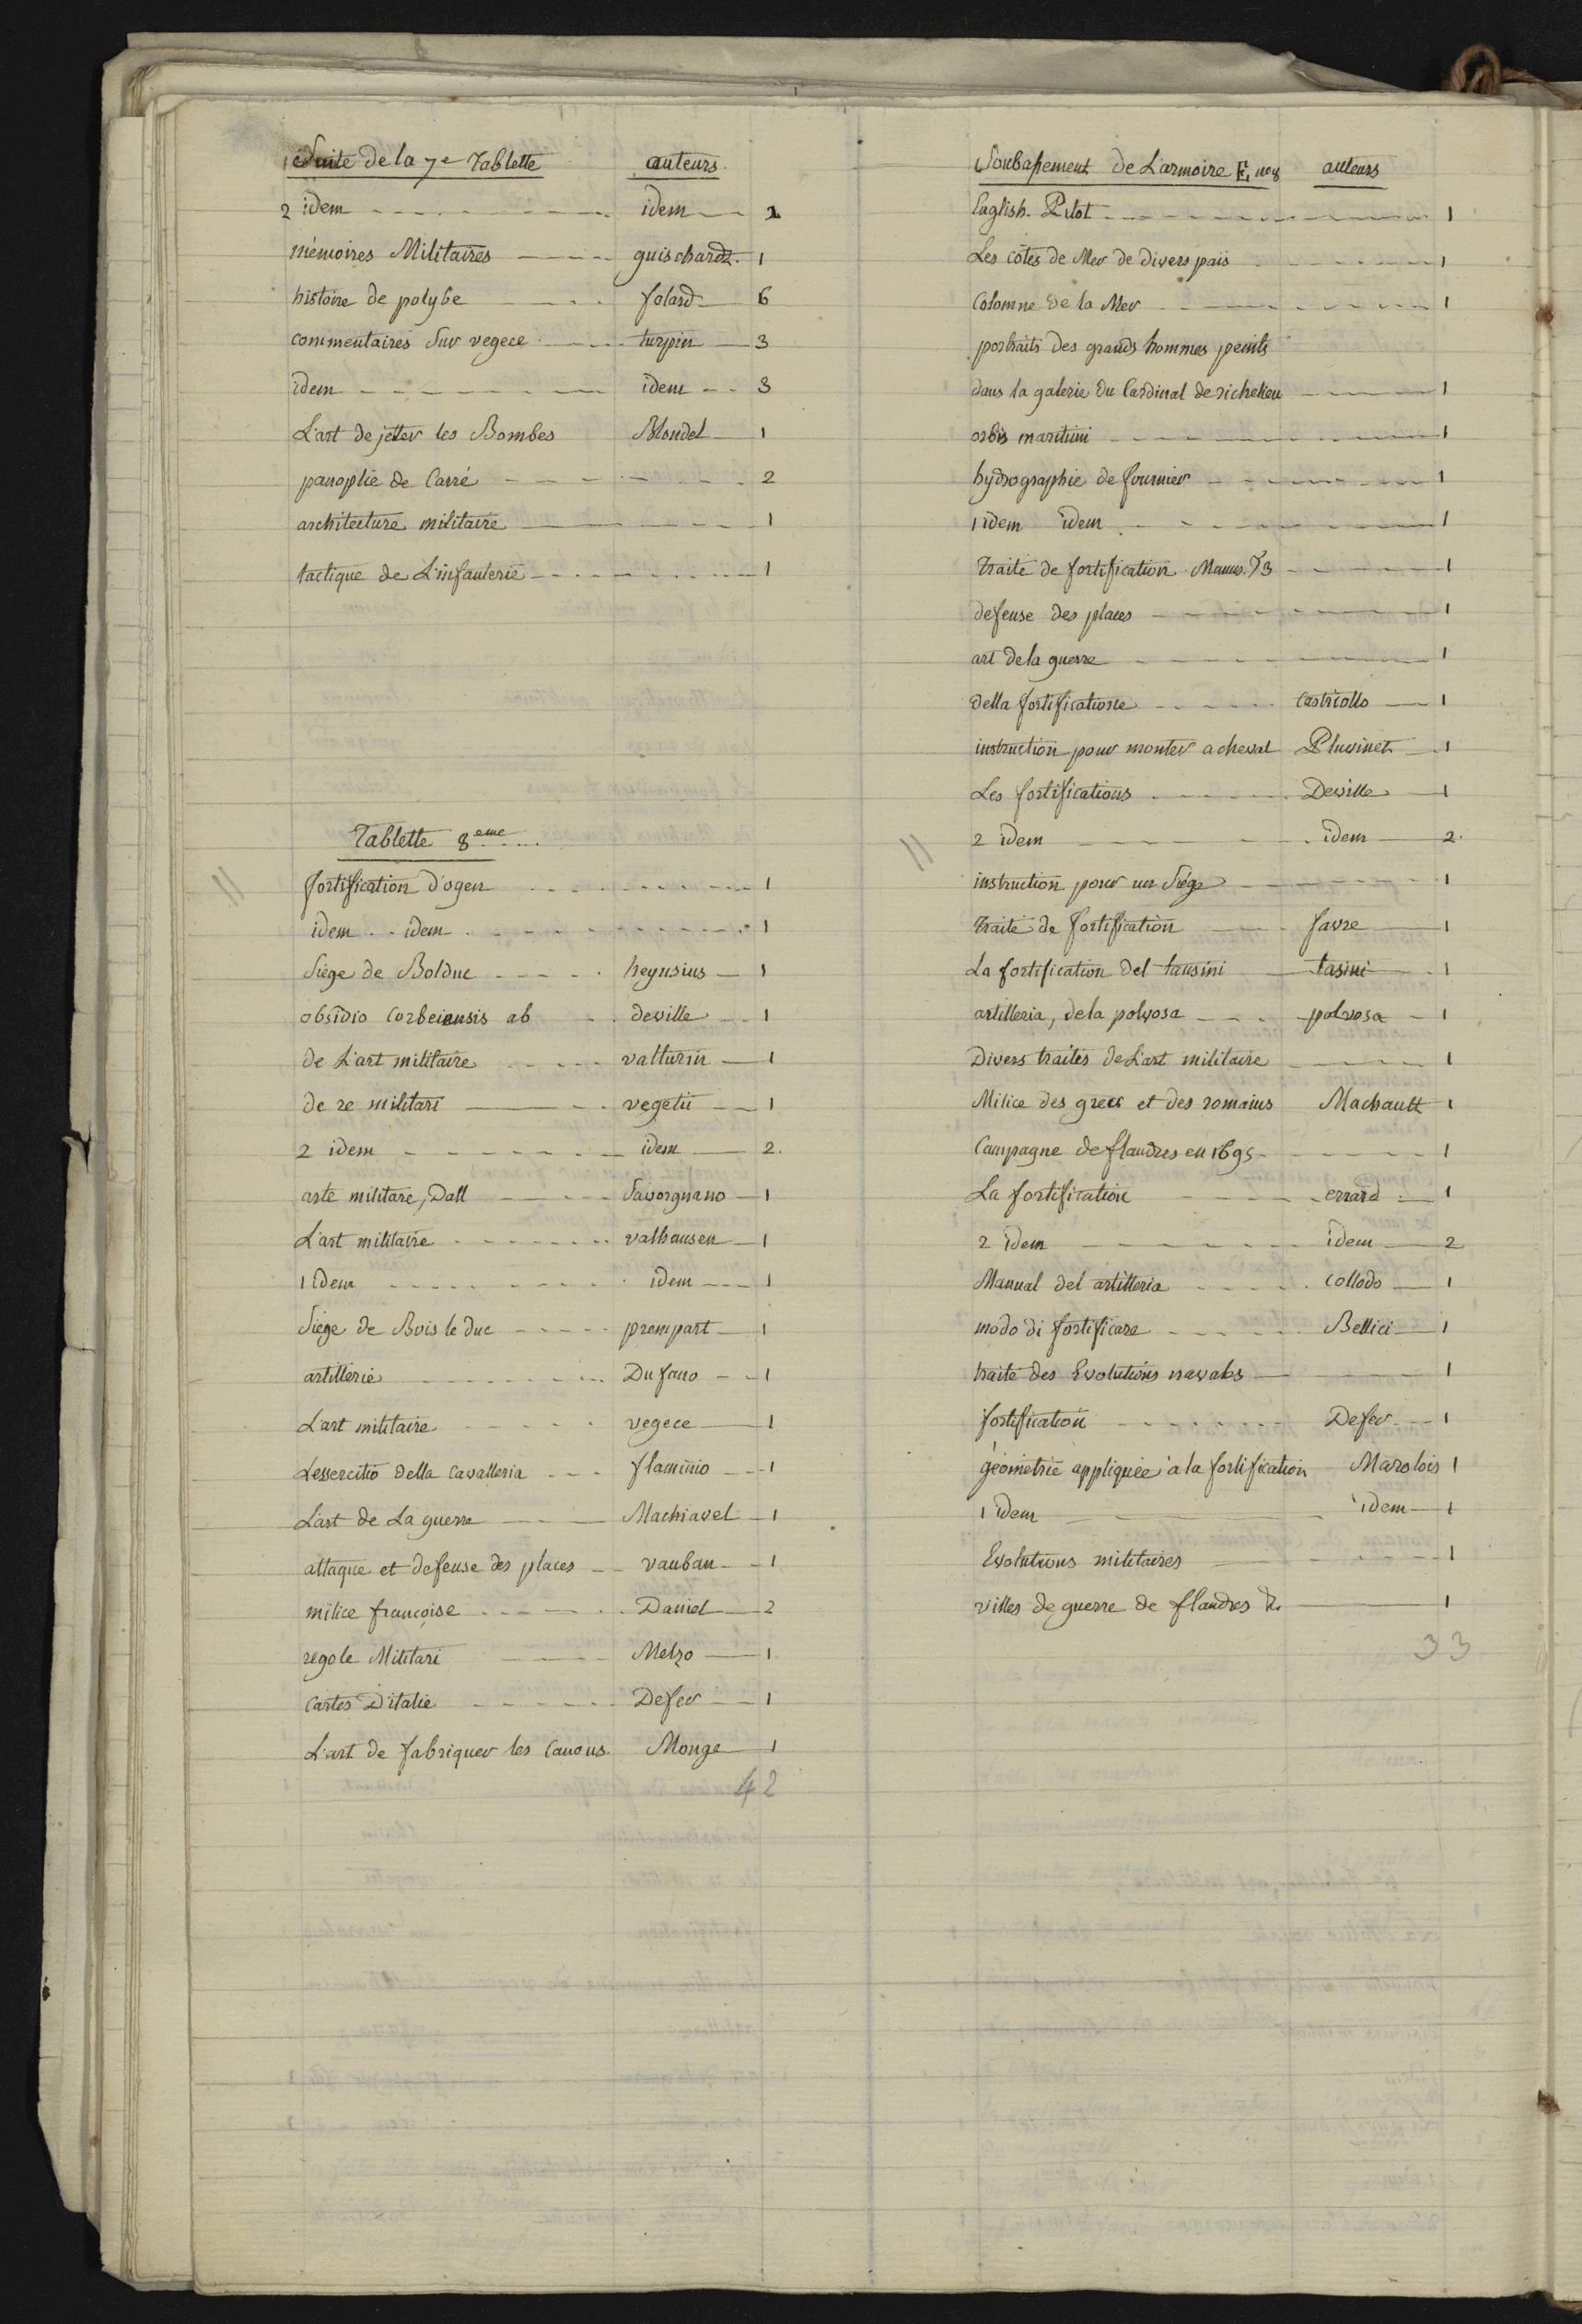 Suite de la 7e Tablette auteurs
2 idem idem 2
mémoires Militaires guischardt. 1
histoire de polybe folard 6
commentaires sur vegece turpin 3
idem idem 3
L'art de jetter les Bombes Blondel 1
panoplie de Carré 2
architecture militaire 1
tactique de L'infanterie 1
Tablette 8eme
11
fortification d'ogen 1
idem idem 1
Siége de Bolduc heynsius 1
obsidio Corbeiensis ab deville 1
de L'art militaire valturin 1
de re militari vegetii 1
2 idem idem 2.
arte militare, Dall Savorgnano 1
L'art militaire valhausen 1
1 idem idem 1
Siége de Bois le duc prempart 1
artillerie Dufano 1
L'art militaire vegece 1
Lessercitio della Cavalleria flaminio 1
L'art de La guerre Machiavel 1
attaque et defense des places vauban 1
milice françoise Daniel 2
regole Militari Melzo 1
Cartes D'italie Defer 1
L'art de fabriquer les Canons. Monge 1
42
Soubassement de L'armoire E, no 8 auteurs
English. Pilot 1
Les côtes de Mer de divers païs 1
Colomne de la Mer 1
portraits des grands hommes peints
dans la galerie du Cardinal de richelieu 1
orbis maritimi 1
hydrographie de fournier 1
1 idem idem 1
Traité de fortification Manus. 73 1
defense des places 1
art de la guerre 1
della fortificatione Castriotto 1
instruction pour monter a cheval Pluvinet 1
Les fortifications Deville 1
11
2 idem idem 2.
instruction pour un Siége 1
Traité de fortification favre 1
La fortification del tansini tasini 1
artilleria, dela polvosa polvosa 1
Divers traités de L'art militaire 1
Milice des grecs et des romains Machault 1
Campagne de flandres en 1695 1
La fortification errard 1
2 idem idem 2
Manual del artilleria Collado 1
modo di fortificare Bellici 1
traité des Evolutions navales 1
fortification Defer 1
géometrie appliquée a la fortification Marolois 1
1 idem idem 1
Evolutions militaires 1
villes de guerre de flandres &. 1
33